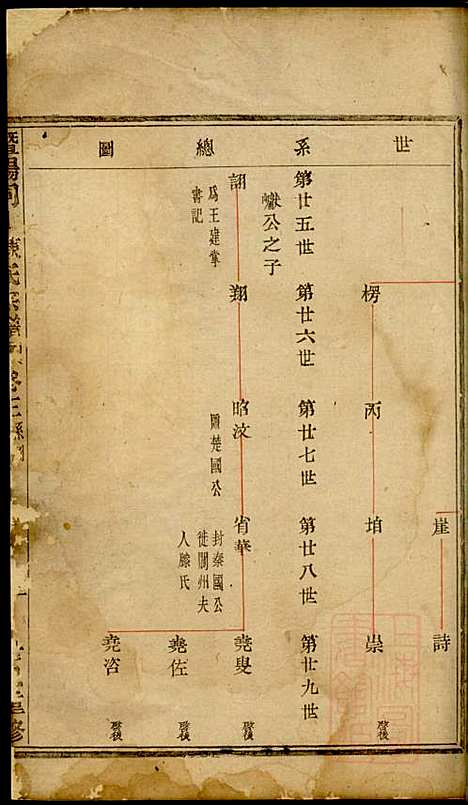 世系總圖
崖
詩
楞
丙
珀
崇
啓後
第廿五世
第廿六世
第廿七世
第廿八世
第廿九世
公之子
詡
翔
昭汶
省華
堯叟
啓後
為王建掌
書記
楚國公
封秦國公
徙閬州夫
人滕氏
堯佐
啓後
堯咨
啓後
暨陽
陳氏宗譜
修